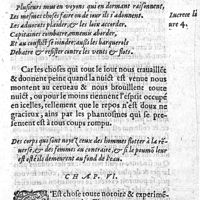 Plusieurs mon en voyons qui en dormant raisonnent,
Les mesmes choses faire ou de iour ils s'adonnent.
Les aduocats plaider, & les loix accorder.
Capitaines combatre, ennemis aborder,
Et au conflict se ioindre, auſſi les barquerols
Debatre & reſiſter contre les vents & flots.
Lucrece li
ure 4.
Car les choſes qui tout le iour nous trauaillẽt
& donnent peine quand la nuict eſt venue nous
montent au cerueau & nous brouillent toute
nuict, ou pour le moins tiennent l'eſprit occupé
en icelles, tellement que le repos n'eſt doux
gracieux, ains par les phantoſmes qui ſe pre-
ſentent eſt à tous coups rompu.
Des corps qui ſont noyez ceux des hommes flotter à la ré-
uerſe, & des femmes au contraire, & ſi le poumõ leur
eſt oſté ils demeurent au fond de l'eau.
CHAP. VI.
Eſt choſe toute notoire & experimé-